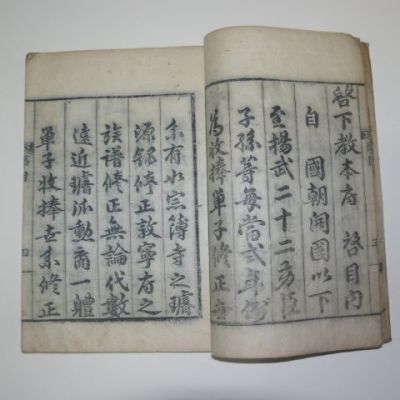 啓下敎本府 啓目內
自 國朝開國以下
至揚武二十二功臣
子孫等每當式年例
爲收捧單子修正
亦有如宗簿寺之璿
源錄修正敦寧府之
族譜修正無論代數
遠近璿派勳裔一體
單子收捧 修正